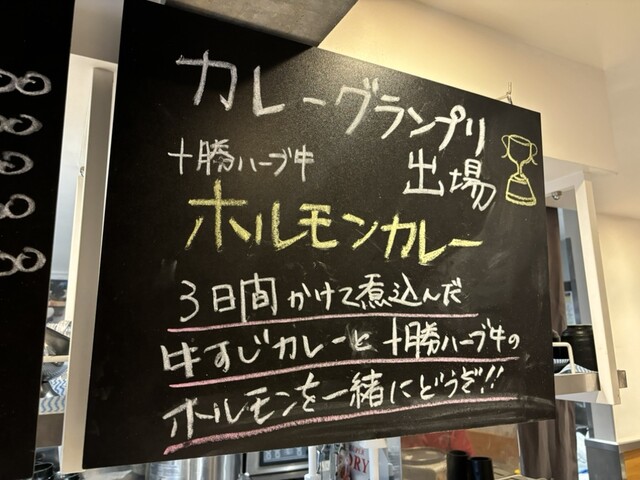 カレーグランプリ
出場
十勝ハーブ牛
ホルモンカレー
3日間かけて煮込んだ
牛すじカレーと十勝ハーブ牛の
ホルモンを一緒にどうぞ!!